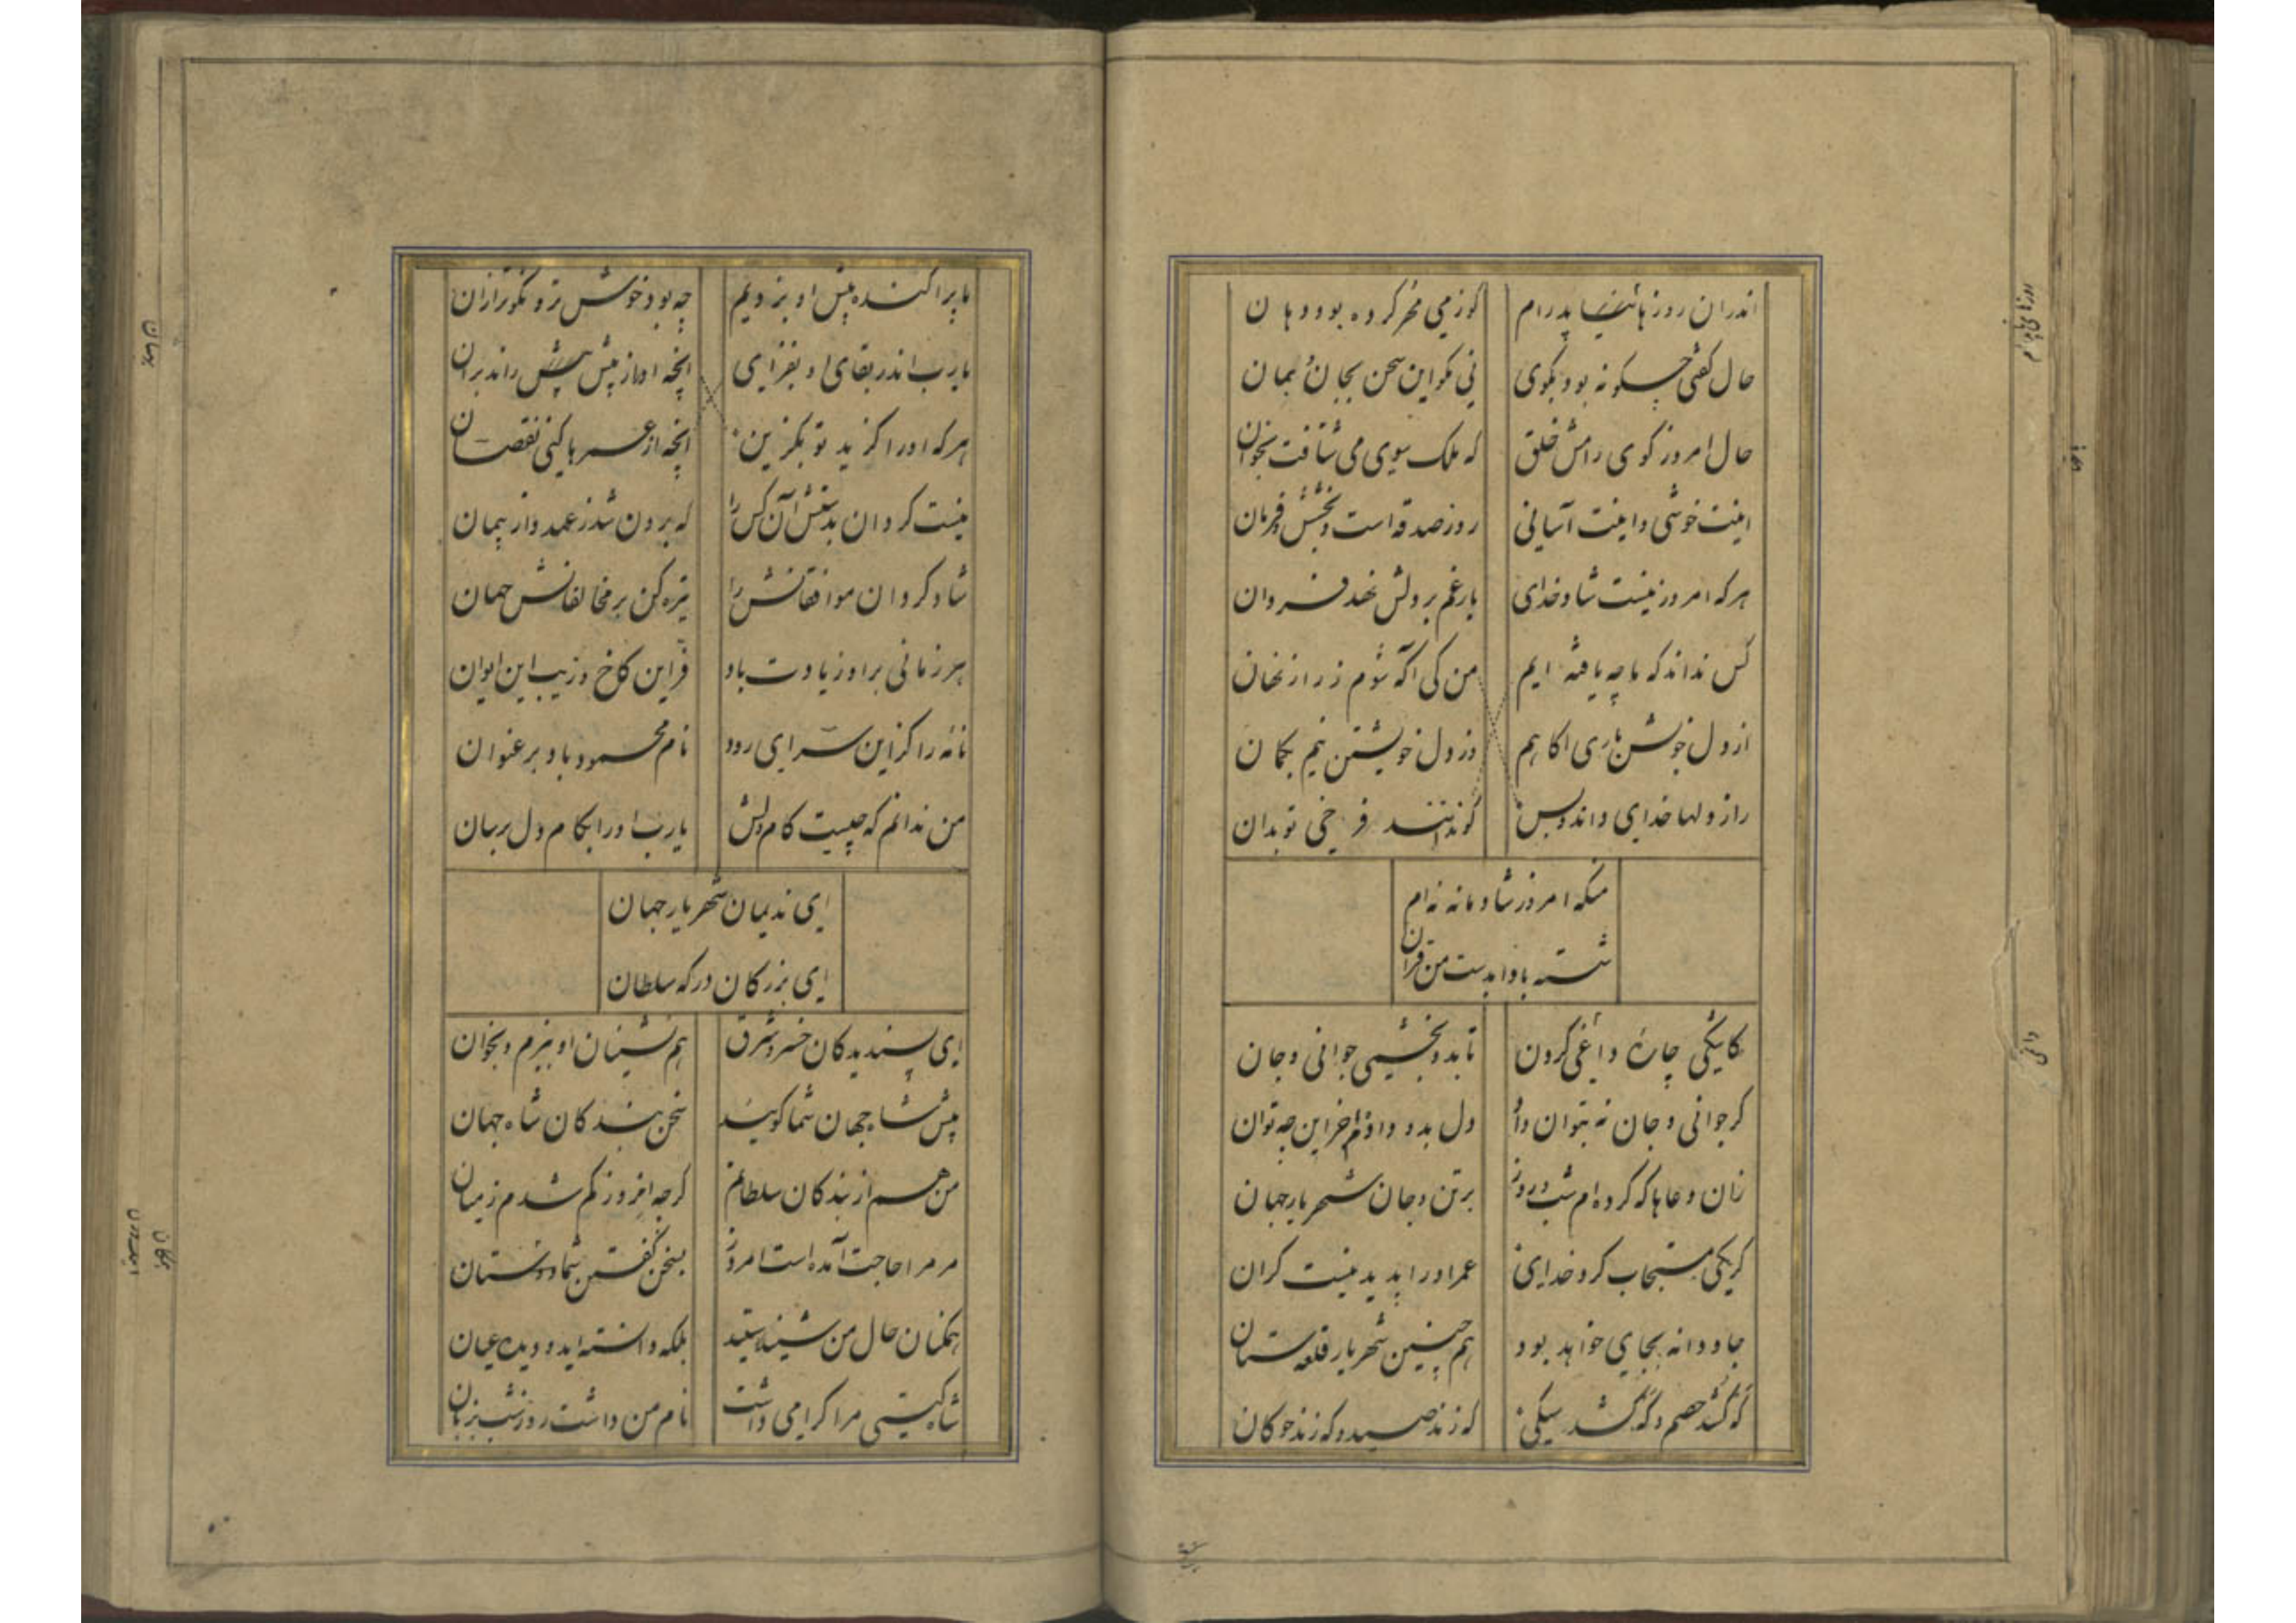 اندران روزهای ناپدرام
کوز می مهر کرده بود دهان
حال گفتی چگونه بود بگوی
نی مگو این سخن بجان بمان
حال امروز گوی و رامش خلق
که ملک سوی می شتافت بخوان
اینت خوشی و اینت آسانی
روز صدقه است و بخشش و قربان
هرکه امروز نیست شاد خدای
بار غم بر دلش نهد فروان
کس نداند که ما چه یافته ایم
من کی اگه شوم ز راز نهان
از دل خویشتن باری اکاهم
وز دل خویشتن نیم بگمان
راز دلها خدای داند و بس
گوید نتند فرخی تو بدان
منکه امروز شادمانه نه ام
شسته بادا بدست من قران
کاشکی چارهٔ دانمی کردن
تا بدو بخشمی جوانی و جان
کر جوانی و جان نه بتوان داد
دل بدو دادم آخر این چه توان
زان دعاها که کرده ام شب و روز
بر تن و جان شهریار جهان
کر یکی مستجاب کرد خدای
عمر او را پدید نیست کران
جاودانه بجای خواهد بود
هم چنین شهریار قلعه ستان
که کشد خصم و که کشد سیکی
که زند صید و که زند چوکان
ما پراکنده پیش او بزویم
چه بود خوش تر و نکوتر ازان
یارب اندر بقای او بفزای
انچه او از پیش پیش راند بران
هرکه او را کزید تو بگزین
انچه از عمرها کنی نقصان
نیست کردان بدسکش آن کس را
که برون شد ز عهد و از پیمان
شاد کردان موافقانش را
تیره کن بر مخالفانش جهان
هر زمانی براو زیادت باد
فر این کاخ و زیب این ایوان
نامه را کزین سرای رود
نام محمود باد بر عنوان
من ندانم که چیست کام دلش
یارب او را بکام دل برسان
ای ندیمان شهریار جهان
ای بزرکان درکه سلطان
ای پسندیدکان خسرو شرق
هم نشینان او ببزم و بخوان
پیش شاه جهان شما کویید
سخن بندکان شاه جهان
من هم از بندکان سلطانم
کرچه امروز کم شدم ز میان
مر مرا حاجت آمده است امروز
بسخن گفتن شما دوستان
همکنان حال من شنیدستید
بلکه دانسته اید و دیده عیان
شاه کیتی مرا کرامی داشت
نام من داشت روز و شب بزبان